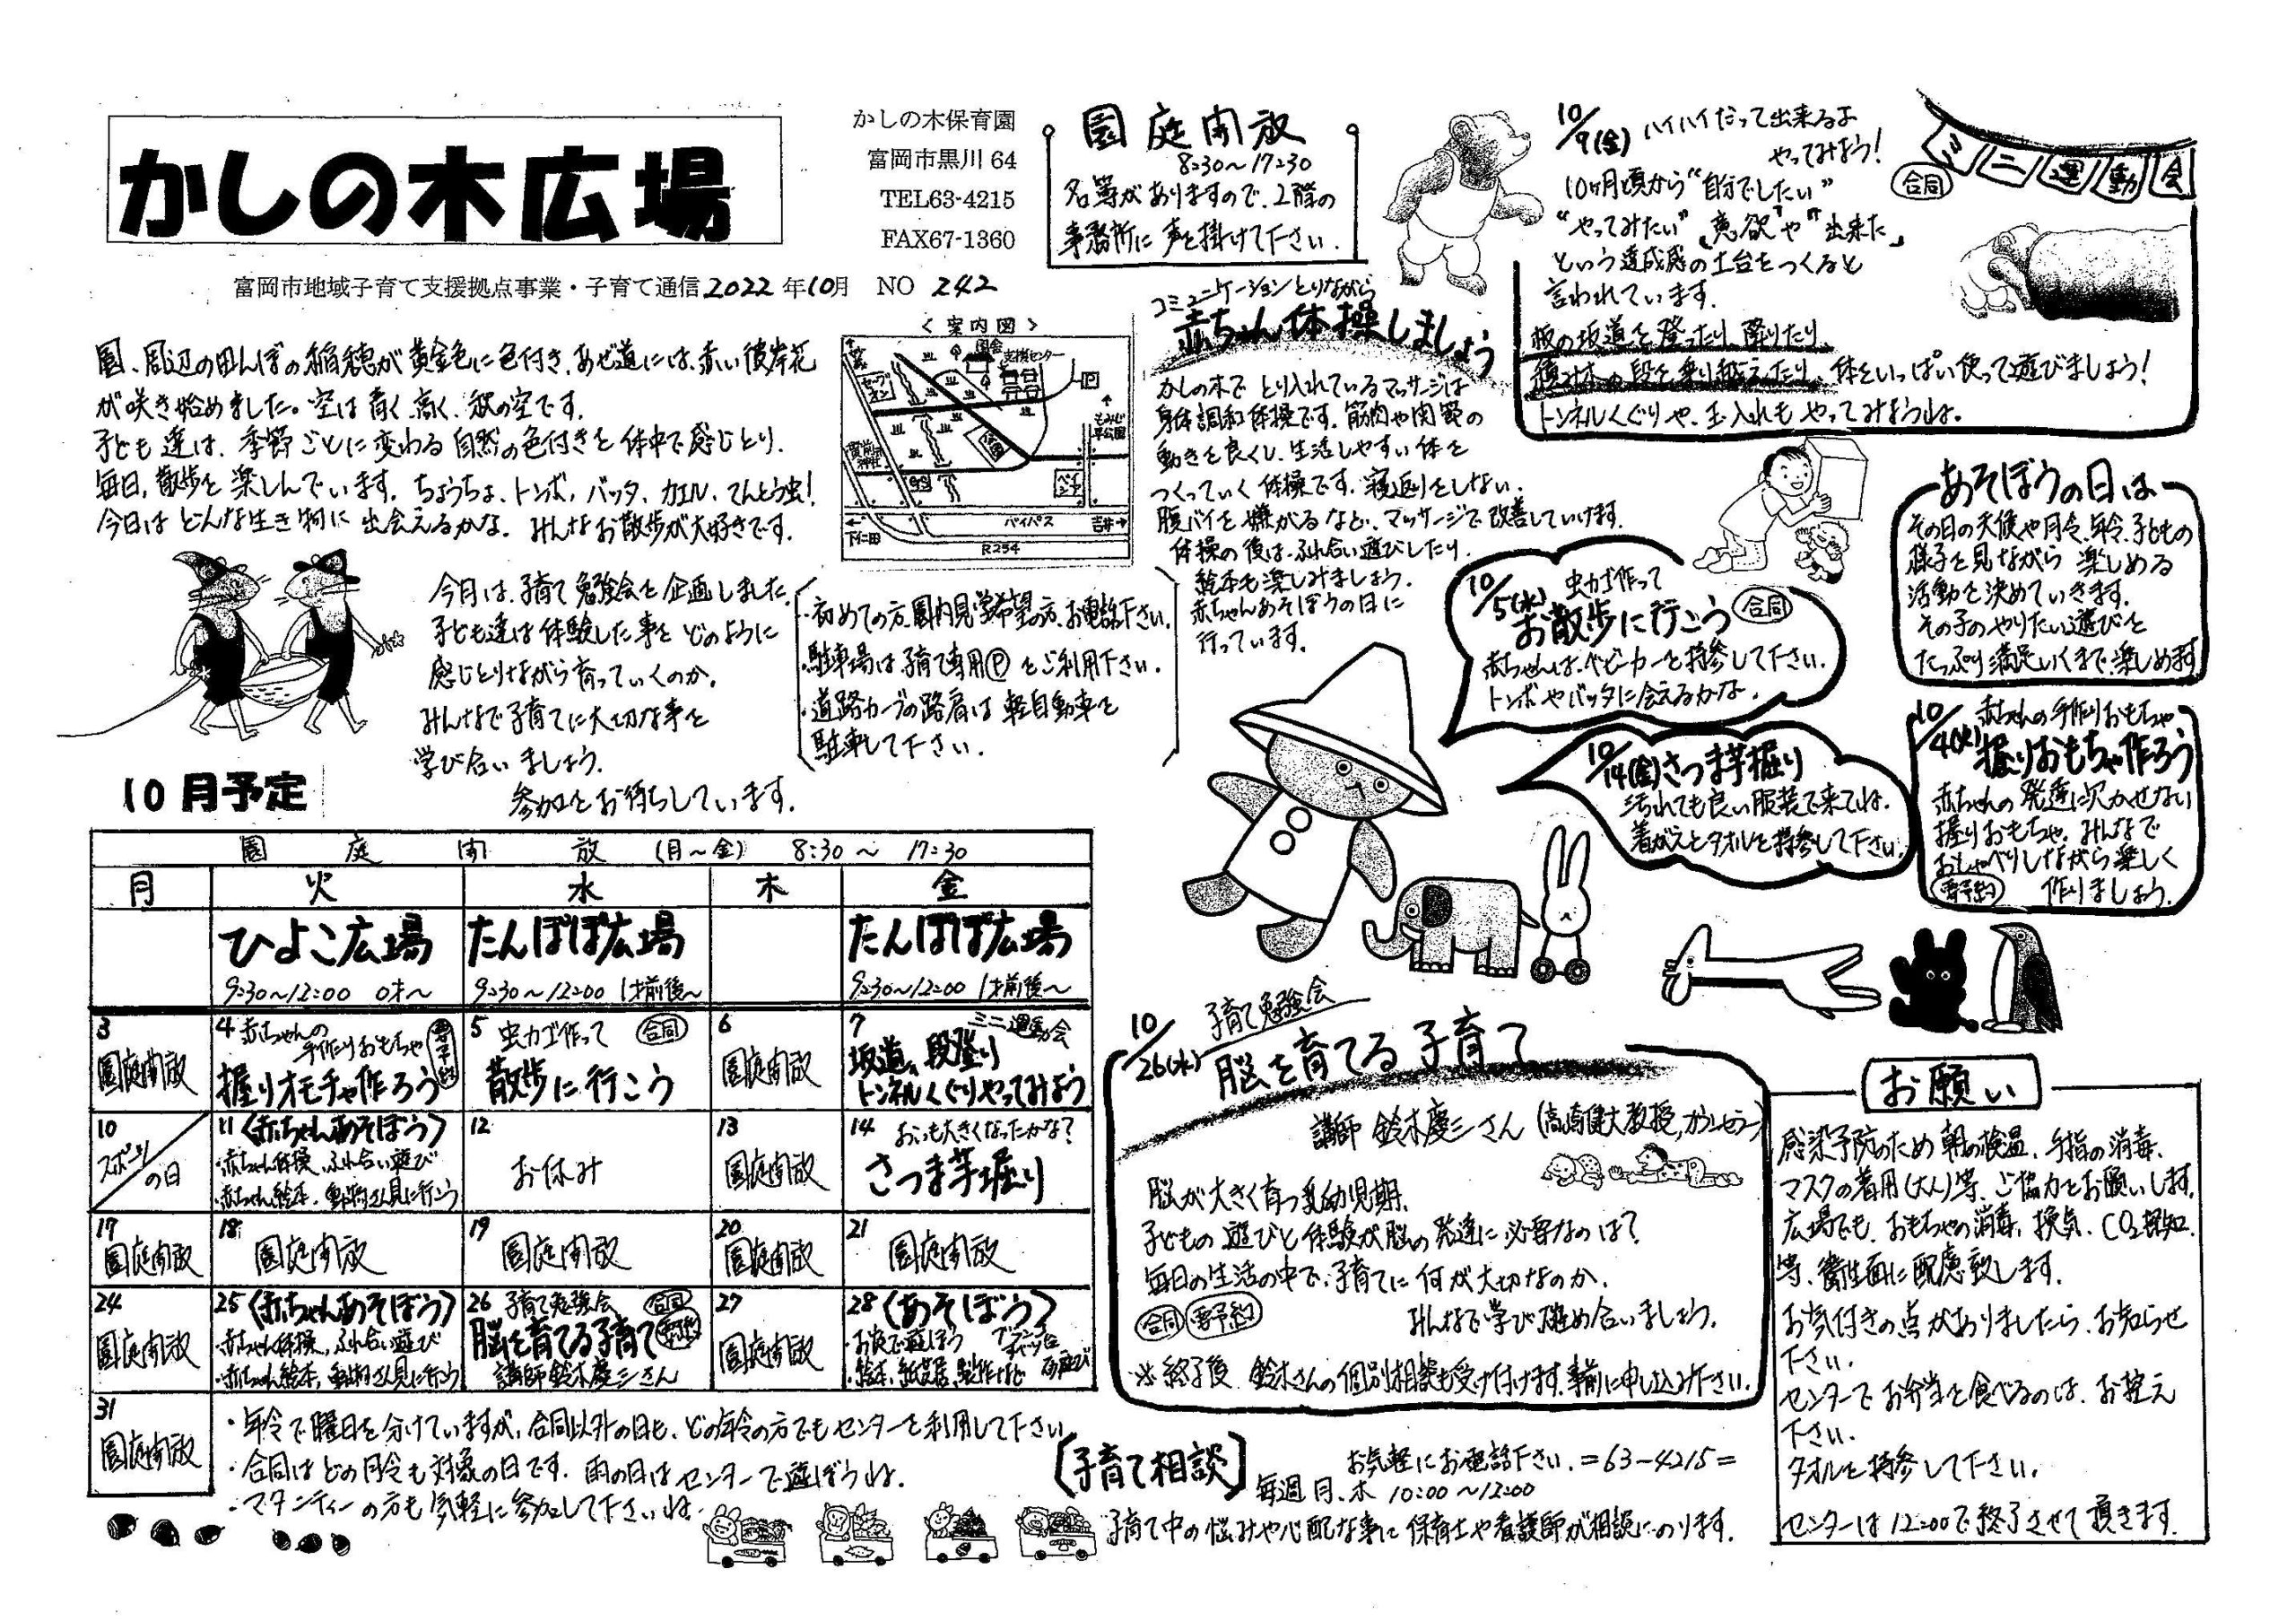 かしの木広場
かしの木保育園
富岡市黒川 64
TEL63-4215
FAX67-1360
富岡市地域子育て支援拠点事業・子育て通信 2022年10月 NO 242
園庭開放
8:30～17:30
名簿がありますので、2階の
事務所に声を掛けて下さい。
園、周辺の田んぼの稲穂が黄金色に色付き、あぜ道には、赤い彼岸花
が咲き始めました。空は青く、高く、秋の空です。
子ども達は、季節ごとに変わる自然の色付きを体中で感じとり、
毎日、散歩を楽しんでいます。ちょうちょ、トンボ、バッタ、カエル、てんとう虫！
今日はどんな生き物に出会えるかな。みんなお散歩が大好きです。
今月は、子育て勉強会を企画しました。
子ども達は体験した事をどのように
感じとりながら育っていくのか。
みんなで子育てに大切な事を
学び合いましょう。
参加をお待ちしています。
＜案内図＞
支援センター
セーブオン
もみじ平公園
バイパス
下仁田
吉井
R254
・初めての方、園内見学希望の方、お電話下さい。
・駐車場は子育て専用Ⓟをご利用下さい。
・道路カーブの路肩は軽自動車を
駐車して下さい。
コミュニケーションとりながら
赤ちゃん体操しましょう
かしの木でとり入れているマッサージは
身体調和体操です。筋肉や関節の
動きを良くし、生活しやすい体を
つくっていく体操です。寝返りをしない、
腹バイを嫌がるなど、マッサージで改善していけます。
体操の後は、ふれ合い遊びしたり、
絵本も楽しみましょう。
赤ちゃんあそぼうの日に
行っています。
ミニ運動会
合同
10/9(金) ハイハイだって出来るよ
やってみよう！
10ヶ月頃から“自分でしたい”
“やってみたい”意欲や“出来た”
という達成感の土台をつくると
言われています。
板の坂道を登ったり、降りたり、
積み木の段を乗り越えたり、体をいっぱい使って遊びましょう！
トンネルくぐりや、玉入れもやってみようね。
10/5(水) 虫カゴ作って
お散歩に行こう 合同
赤ちゃんは、ベビーカーを持参して下さい。
トンボやバッタに会えるかな。
あそぼうの日は
その日の天候や月令、年令、子どもの
様子を見ながら楽しめる
活動を決めていきます。
その子のやりたい遊びを
たっぷり満足いくまで、楽しめます
10/14(金)さつま芋掘り
汚れても良い服装で来てね。
着がえとタオルを持参して下さい。
10/4(火) 赤ちゃんの手作りおもちゃ
握りおもちゃ作ろう
赤ちゃんの発達に欠かせない
握りおもちゃ。みんなで
おしゃべりしながら楽しく
作りましょう。
要予約
10月予定
園庭開放 (月～金) 8:30～17:30
月 火 水 木 金
ひよこ広場 たんぽぽ広場 たんぽぽ広場
9:30～12:00 0才～ 9:30～12:00 1才前後～ 9:30～12:00 1才前後～
3
園庭開放
4 赤ちゃんの
手作りおもちゃ 要予約
握りオモチャ作ろう
5 虫カゴ作って 合同
散歩に行こう
6
園庭開放
7 ミニ運動会
坂道、段登り
トンネルくぐりやってみよう
10
スポーツの日
11〈赤ちゃんあそぼう〉
・赤ちゃん体操、ふれ合い遊び
・赤ちゃん絵本、動物さん見に行こう
12
お休み
13
園庭開放
14 おいも大きくなったかな？
さつま芋堀り
17
園庭開放
18
園庭開放
19
園庭開放
20
園庭開放
21
園庭開放
24
園庭開放
25〈赤ちゃんあそぼう〉
・赤ちゃん体操、ふれ合い遊び
・赤ちゃん絵本、動物さん見に行こう
26 子育て勉強会 合同
脳を育てる子育て 要予約
講師 鈴木慶三さん
27
園庭開放
28〈あそぼう〉
・お庭で遊ぼう
・絵本、紙芝居、製作など
31
園庭開放
・年令で曜日を分けていますが、合同以外の日も、どの年令の方でもセンターを利用して下さい。
・合同はどの月令も対象の日です。雨の日はセンターで遊ぼうね。
・マタニティーの方も気軽に参加して下さいね。
10/26(水) 子育て勉強会
脳を育てる子育て
講師 鈴木慶三さん (高崎健大教授、
脳が大きく育つ乳幼児期。
子どもの遊びと体験が脳の発達に必要なのは？
毎日の生活の中で、子育てに何が大切なのか、
みんなで学び確め合いましょう。
合同 要予約
※終了後、鈴木さんの個別相談も受け付けます。事前に申し込み下さい。
〔子育て相談〕
お気軽にお電話下さい。=63-4215=
毎週月、木 10:00～12:00
子育て中の悩みや心配な事に保育士や看護師が相談にのります。
お願い
感染予防のため朝の検温、手指の消毒、
マスクの着用(大人)等、ご協力をお願いします。
広場でも、おもちゃの消毒、換気、CO2検知
等、衛生面に配慮致します。
お気付きの点がありましたら、お知らせ
下さい。
センターでお弁当を食べるのは、お控え
下さい。
タオルを持参して下さい。
センターは12:00で終了させて頂きます。